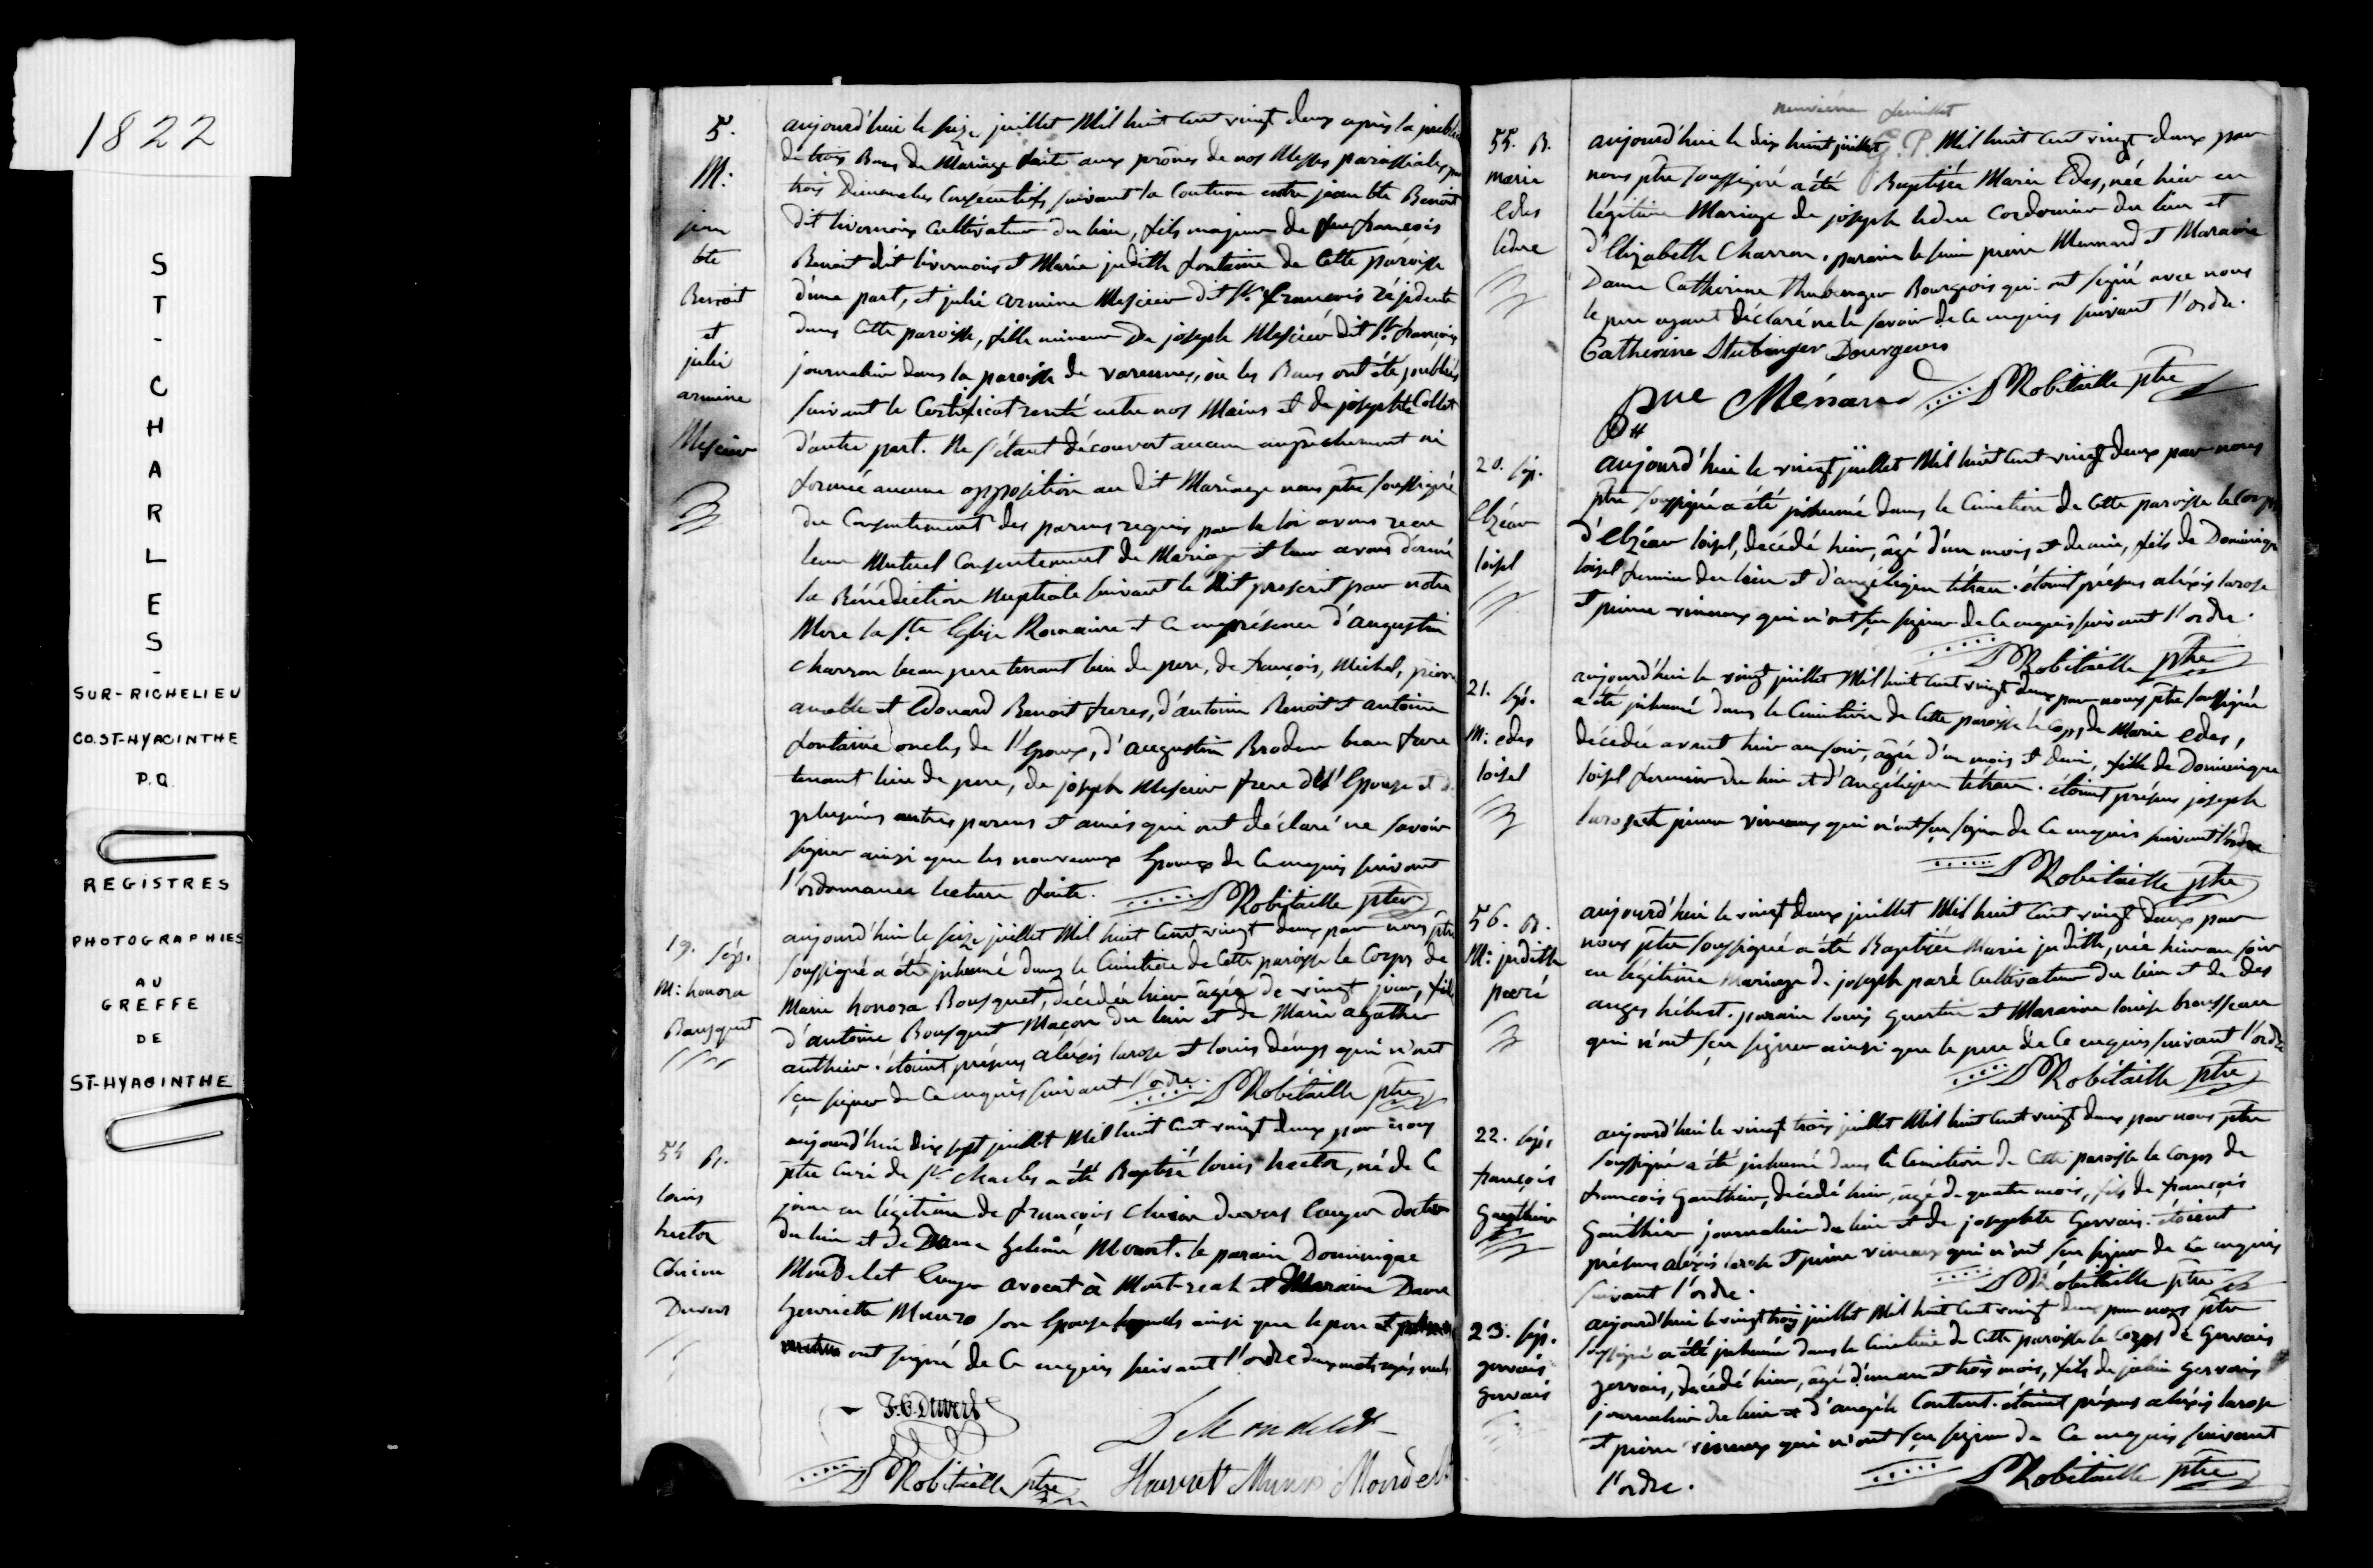 1822
ST-CHARLES-
SUR-RICHELIEU
CO. ST-HYACINTHE
P.Q.
REGISTRES
PHOTOGRAPHIES
AU
GREFFE
DE
ST-HYACINTHE
5.
M:
jean
bte
Benoit
et
julie
armine
Messier
aujourd'hui le seize juillet Mil huit Cent vingt deux après la
de trois Bans de Mariage faite aux prônes de nos Messes paroissiales
trois Dimanches Consécutifs suivant la Coutume entre jean bte Benoit
dit livernois Cultivateur du lieu, fils majeur de feu françois
Benoit dit livernois et Marie judith fontaine de Cette paroisse
d'une part, et julie armine Messier dit St. françois résidente
dans Cette paroisse, fille mineure de joseph Messier dit St. françois
journalier dans la paroisse de varennes, où les Bans ont été publiés
suivant le Certificat remis entre nos Mains et de josephte Collet
d'autre part. Ne s'étant découvert aucun empêchement ni
formée aucune opposition au dit Mariage nous ptre soussigné
du Consentement des parens requis par la loi avons recu
leur Mutuel Consentement de Mariage et leur avons donné
la Bénédiction Nuptiale suivant le Rit prescrit par notre
Mere la Ste Eglise Romaine et Ce en présence d'augustin
charron beau pere tenant lieu de pere, de françois, Michel, pierre
et Edouard Benoit freres, d'antoine Benoit et antoine
fontaine oncles de l'Epoux, d'augustin Brodeur beau frere
tenant lieu de pere, de joseph Messier frere de l'Epouse et
plusieurs autres parens et amis qui ont déclaré ne savoir
signer ainsi que les nouveaux Epoux de Ce enquis suivant
l'ordonnance lecture faite. Robitaille ptre
19. Sép.
M: honora
Bousquet
aujourd'hui le seize juillet Mil huit Cent vingt deux par nous ptre
soussigné a été inhumé dans le Cimetiere de Cette paroisse le Corps de
Marie honora Bousquet, décédée hier âgée de vingt jours, fille
d'antoine Bousquet Maçon du lieu et de Marie agathe
authier. étoient présens alexis larose et louis dényg qui n'ont
sçu signer de Ce enquis suivant l'ordre. Robitaille ptre
54 B.
louis
hector
Chicou
Duvert
aujourd'hui dix sept juillet Mil huit Cent vingt deux par nous
ptre Curé de St. charles a été Baptisé louis hector, né de Ce
jour en légitime de françois Chicou duvert Ecuyer docteur
du lieu et de Dame Mount. le parain Dominique
Mondelet Ecuyer avocat à Mont-real et Maraine Dame
henriette Munro son Epouse lesquels ainsi que le pere et
ont signé de Ce enquis suivant l'ordre deux mots rayés nuls
F. C. Duvert
D Mondelet
Robitaille ptre Harriet Munro Mondelet
neuvième feuillet
55. B.
marie
Edes
leduc
aujourd'hui le dix huit juillet Mil huit Cent vingt deux par
nous ptre soussigné a été Baptisée Marie Edes, née hier en
légitime Mariage de joseph leduc Cordonnier du lieu et
d'Elizabeth Charron. parain le sieur pierre Mennard et Maraine
Dame Catherine Bourgeois qui ont signé avec nous
le pere ayant déclaré ne le savoir de Ce enquis suivant l'ordre.
Catherine Stubinger Bourgeois
Ménard Robitaille ptre
20. Sép.
Elzéar
loisel
aujourd'hui le vingt juillet Mil huit Cent vingt deux par nous
ptre soussigné a été inhumé dans le Cimetiere de Cette paroisse le Corps
d'Elzéar loisel, décédé hier, âgé d'un mois et demie, fils de Dominique
loisel fermier du lieu et d'angélique tétrau. étoient présens aléxis larose
et pierre viveaux qui n'ont sçu signer de Ce enquis suivant l'ordre.
Robitaille ptre
21. Sép.
M: edes
loisel
aujourd'hui le vingt juillet Mil huit Cent vingt deux par nous ptre soussigné
a été inhumé dans le Cimetiere de Cette paroisse le Corps de Marie edes,
décédée avant hier au soir, âgée d'un mois et demi, fille de Dominique
loisel fermier du lieu et d'angélique tétrau. étoient présens joseph
larose et pierre viveaux qui n'ont sçu signer de Ce enquis suivant l'ordre
Robitaille ptre
56. B.
M: judith
paré
aujourd'hui le vingt deux juillet Mil huit Cent vingt deux par
nous ptre soussigné a été Baptisée Marie judith, née hier au soir
en légitime Mariage de joseph paré Cultivateur du lieu et de des
anges hébert. parain louis guertin et Maraine louise brousseau
qui n'ont sçu signer ainsi que le pere de Ce enquis suivant l'ordre
Robitaille ptre
22. Sép.
françois
Gauthier
aujourd'hui le vingt trois juillet Mil huit Cent vingt deux par nous ptre
soussigné a été inhumé dans le Cimetiere de Cette paroisse le Corps de
françois Gauthier, décédé hier, âgé de quatre mois, fils de françois
Gauthier journalier du lieu et de josephte Gervais. étoient
présens aléxis larose et pierre viveaux qui n'ont sçu signer de Ce enquis
suivant l'ordre. Robitaille ptre
23. Sép.
gervais
Gervais
aujourd'hui le vingt trois juillet Mil huit Cent vingt deux par nous ptre
soussigné a été inhumé dans le Cimetiere de Cette paroisse le Corps de Gervais
gervais, décédé hier, âgé d'un an et trois mois, fils de julien Gervais
journalier du lieu et d'angèle Content. étoient présens aléxis larose
et pierre viveaux qui n'ont sçu signer de Ce enquis suivant
l'ordre. Robitaille ptre